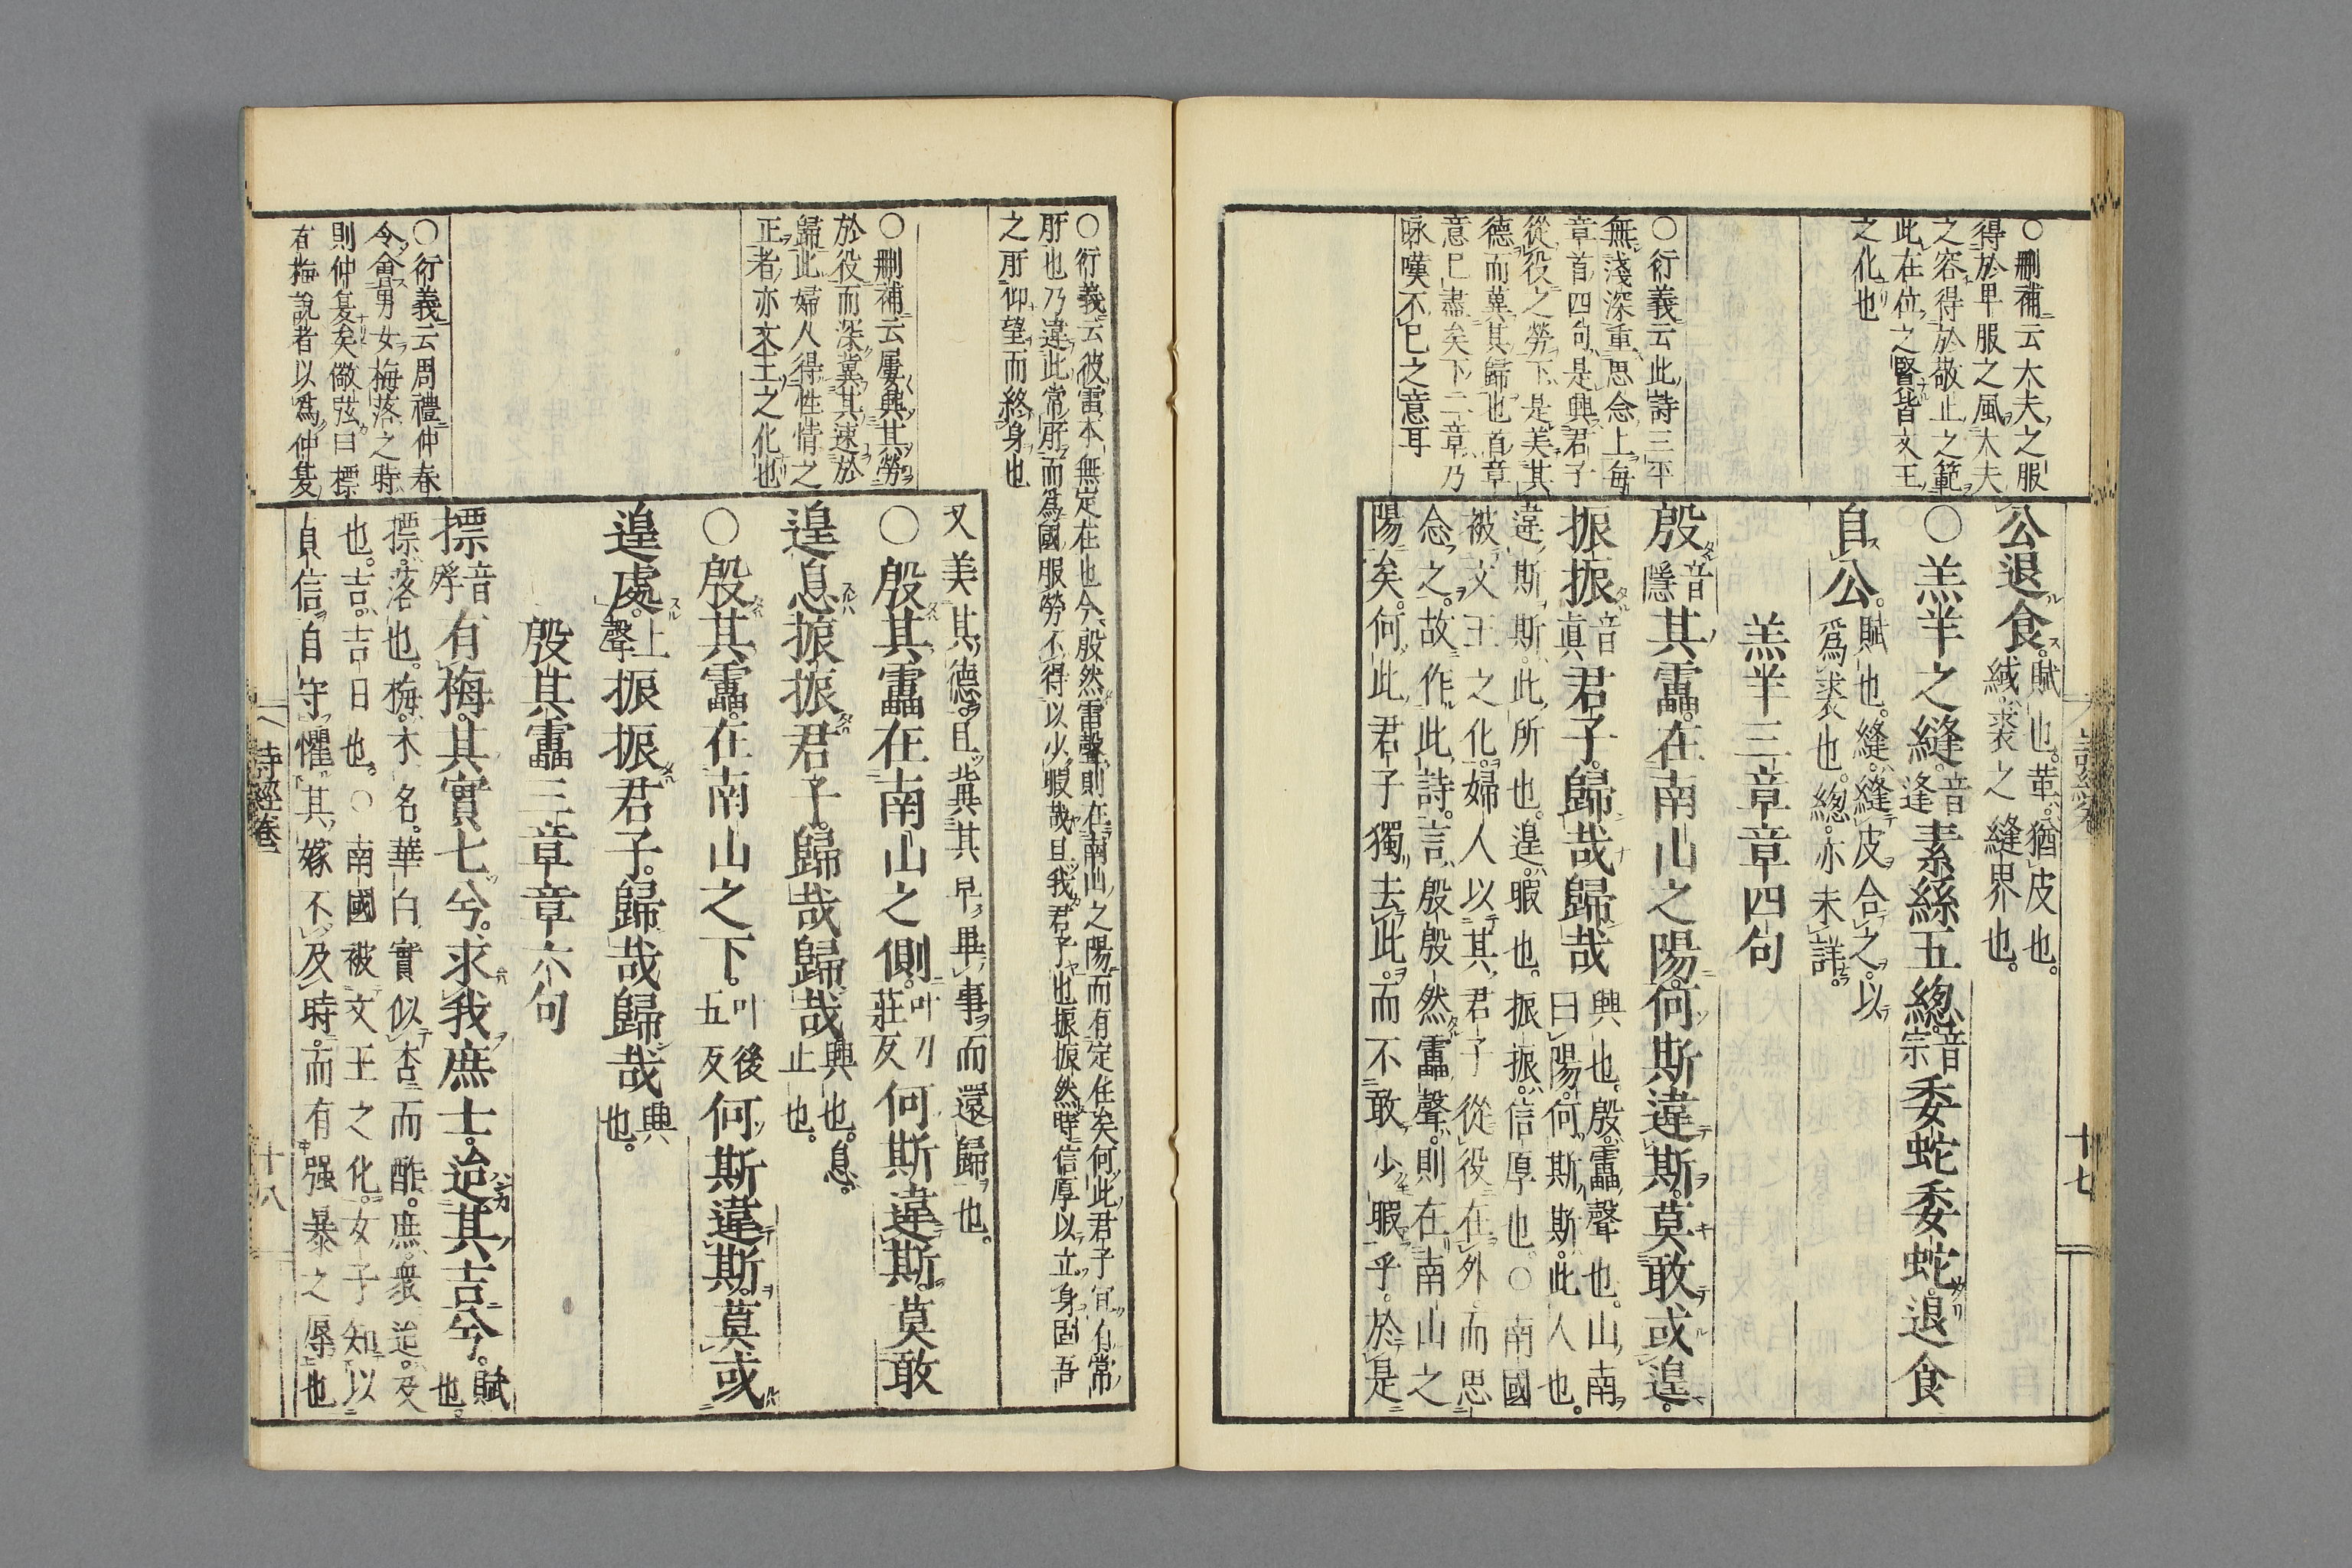 ○刪補云大夫之服
得於甲服之風大夫
之容得於敬止之範
此在位之賢皆文王
之化也
○衍義云此詩三平
無淺深重思念上每
章首四句是興君子
從役之勞下是美其
德而冀其歸也首章
意已盡矣下二章乃
咏嘆不已之意耳
公退食賦也革猶皮也
緎裘之縫界也
○羔羊之縫音逢素絲五緫音宗委蛇委蛇退食
自公賦也縫縫皮合之以
爲裘也緫亦未詳
羔羊三章章四句
殷音隱其靁在南山之陽何斯違斯莫敢或遑
振振音眞君子歸哉歸哉興也殷靁聲也山南
曰陽何斯斯此人也
違斯斯此所也遑暇也振振信厚也○南國
被文王之化婦人以其君子從役在外而思
念之故作此詩言殷殷然靁聲則在南山之
陽矣何此君子獨去此而不敢少暇乎於是
十七
○衍義云彼雷本無定在也今殷然雷聲則在南山之陽而有定在矣何此君子宜有常
所也乃違此常所而爲國服勞不得以少暇哉且我君子也振振然時信厚以立身固吾
之所仰望而終身也
○刪補云屢興其勞
於役而深冀其速於
歸此婦人得性情之
正者亦文王之化也
○衍義云周禮仲春
令會男女梅落之時
則仲夏矣儆弦曰摽
有梅說者以爲仲夏
又美其德且冀其早畢事而還歸也
○殷其靁在南山之側叶刀莊反何斯違斯莫敢
遑息振振君子歸哉歸哉興也息
止也
○殷其靁在南山之下叶後五反何斯違斯莫或
遑處上聲振振君子歸哉歸哉興也
殷其靁三章章六句
摽音殍有梅其實七兮求我庶士迨其吉兮賦也
摽落也梅木名華白實似杏而酢庶衆迨及
也吉吉日也○南國被文王之化女子知以
貞信自守懼其嫁不及時而有强暴之辱也
詩經卷
十八